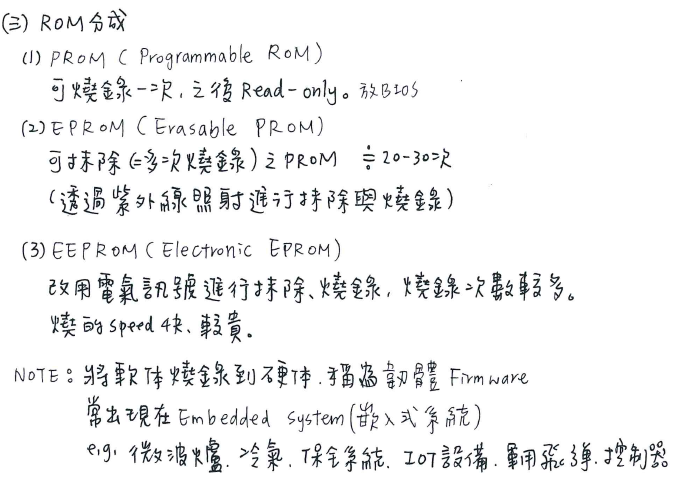 (三) ROM分成
(1) PROM ( Programmable ROM)
可燒錄一次, 之後 Read-only。放BIOS
(2) EPROM ( Erasable PROM)
可抹除 (=多次燒錄) 之 PROM ≒20-30次
(透過紫外線照射進行抹除與燒錄)
(3) EEPROM ( Electronic EPROM)
改用電氣訊號進行抹除、燒錄, 燒錄次數較多。
燒的speed 快、較貴。
NOTE: 將軟体燒錄到硬体, 稱為韌體 Firmware
常出現在 Embedded system (嵌入式系統)
e.g. 微波爐、冷氣、保全系統、IOT設備、軍用飛彈、控制器。